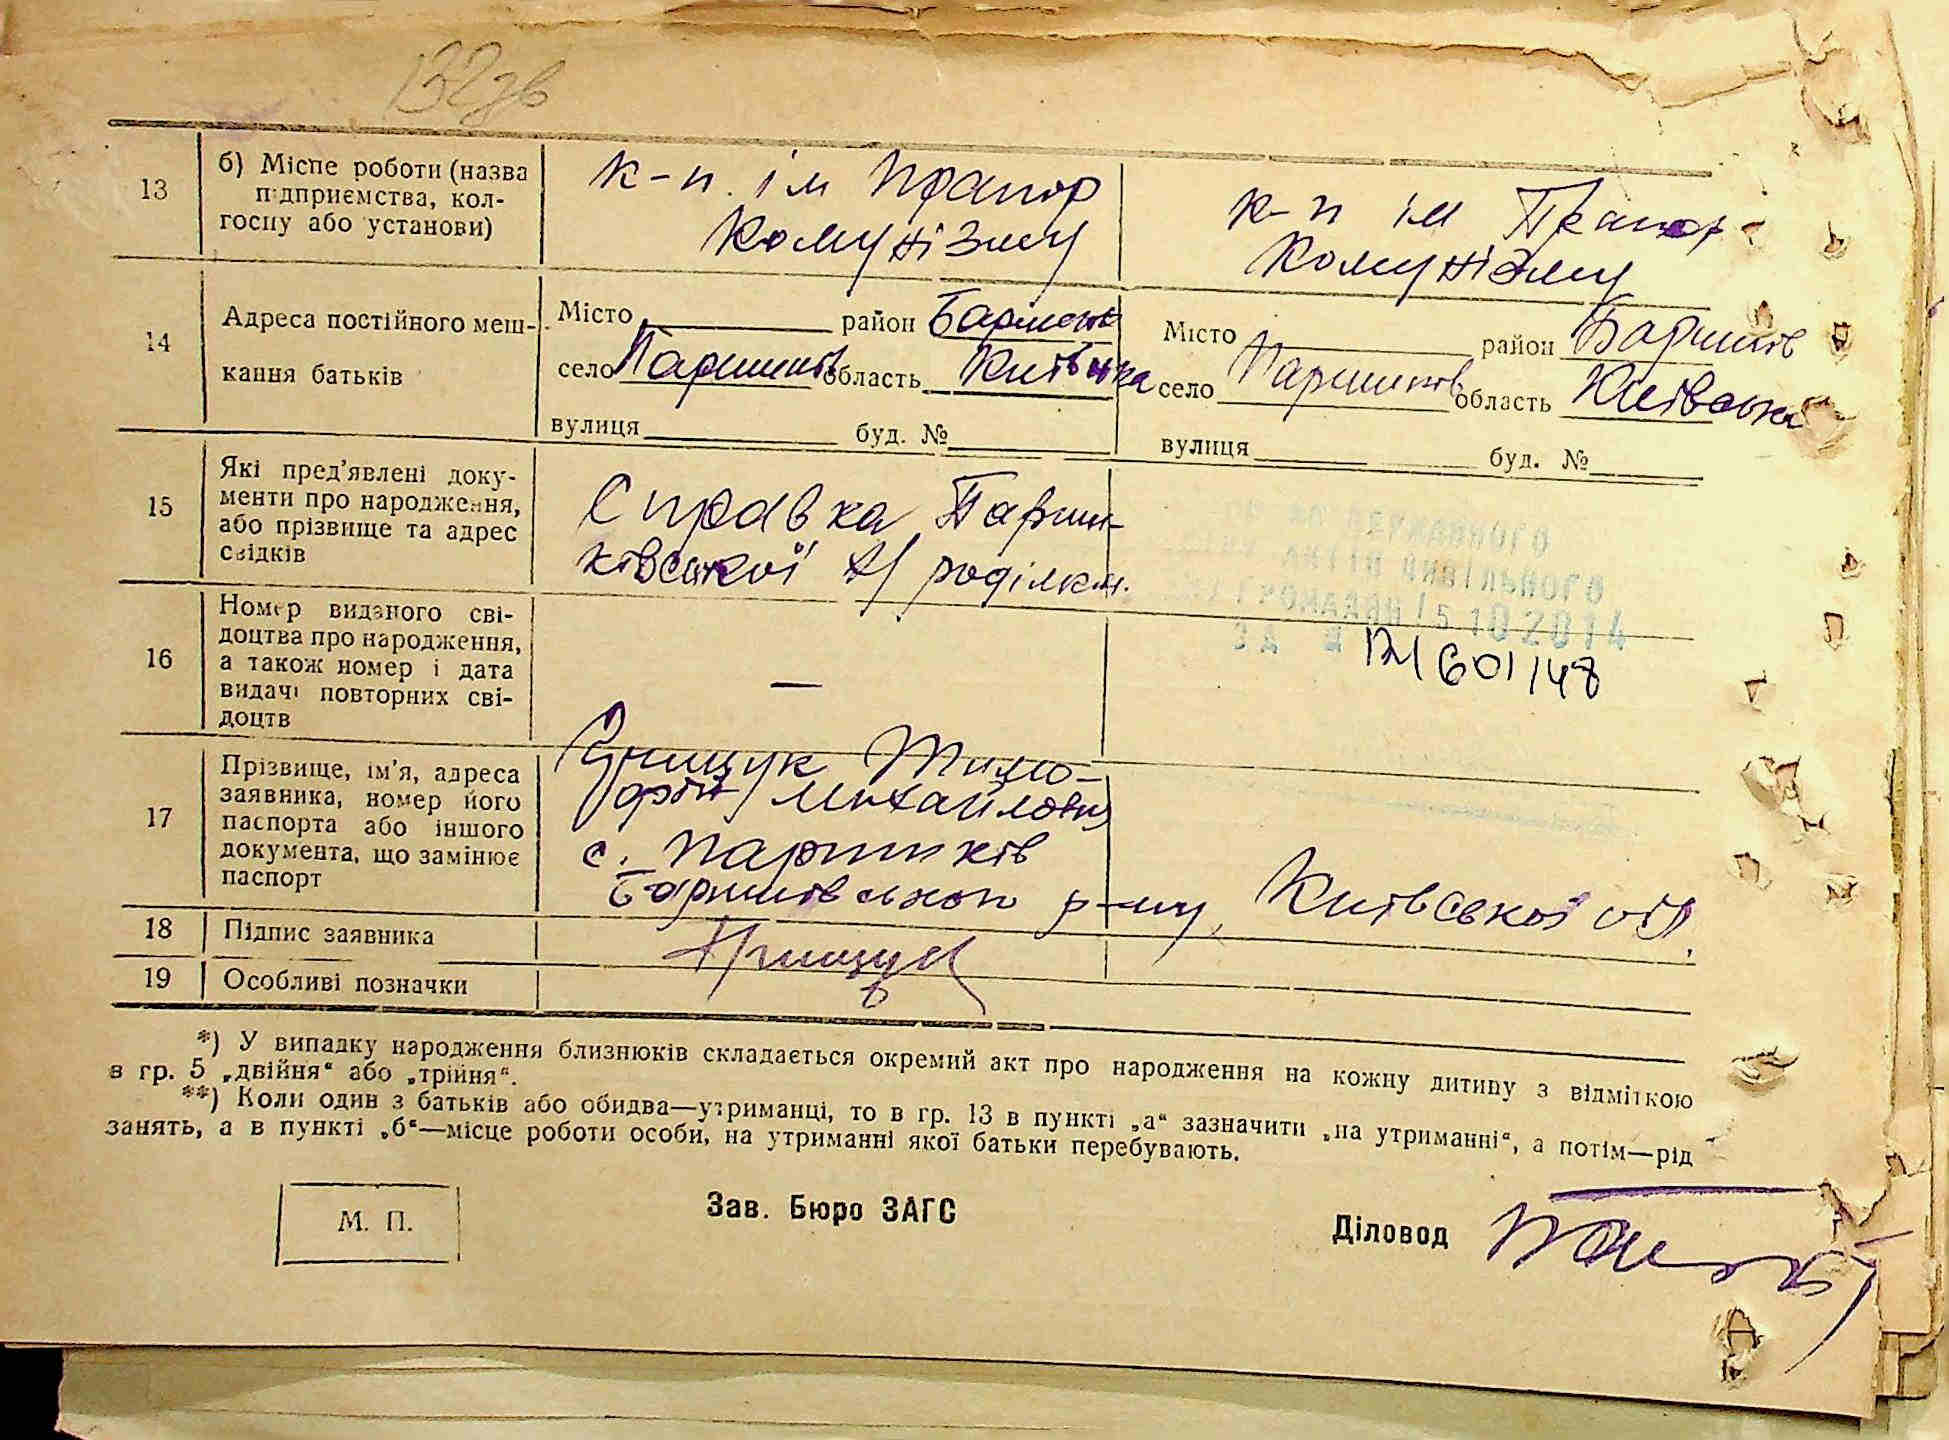 132зв
13
б) Місце роботи (назва
підприємства, кол-
госпу або установи)
к-п. ім Прапор
Комунізму
к-п ім Прапор
Комунізму
14
Адреса постійного меш-
кання батьків
Місто район
село Паришків область Київська
вулиця буд. №
Місто район Баришів
село Паришків область Київська
вулиця буд. №
15
Які пред'явлені доку-
менти про народження,
або прізвище та адрес
свідків
Справка Париш-
ківської роділки.
16
Номер виданого сві-
доцтва про народження,
а також номер і дата
видачі повторних сві-
доцтв
—
ДЕРЖАВНОГО
АКТІВ ЦИВІЛЬНОГО
ГРОМАДЯН 15 10 2014
ЗА №
601/48
17
Прізвище, ім'я, адреса
заявника, номер його
паспорта або іншого
документа, що замінює
паспорт
Тимо-
фій Михайлович
с. Паришків
р-ну, Київської обл.
18
Підпис заявника
19
Особливі позначки
*) У випадку народження близнюків складається окремий акт про народження на кожну дитину з відміткою
в гр. 5 „двійня“ або „трійня“.
**) Коли один з батьків або обидва—утриманці, то в гр. 13 в пункті „а“ зазначити „на утриманні“, а потім—рід
занять, а в пункті „б“—місце роботи особи, на утриманні якої батьки перебувають.
М. П.
Зав. Бюро ЗАГС
Діловод